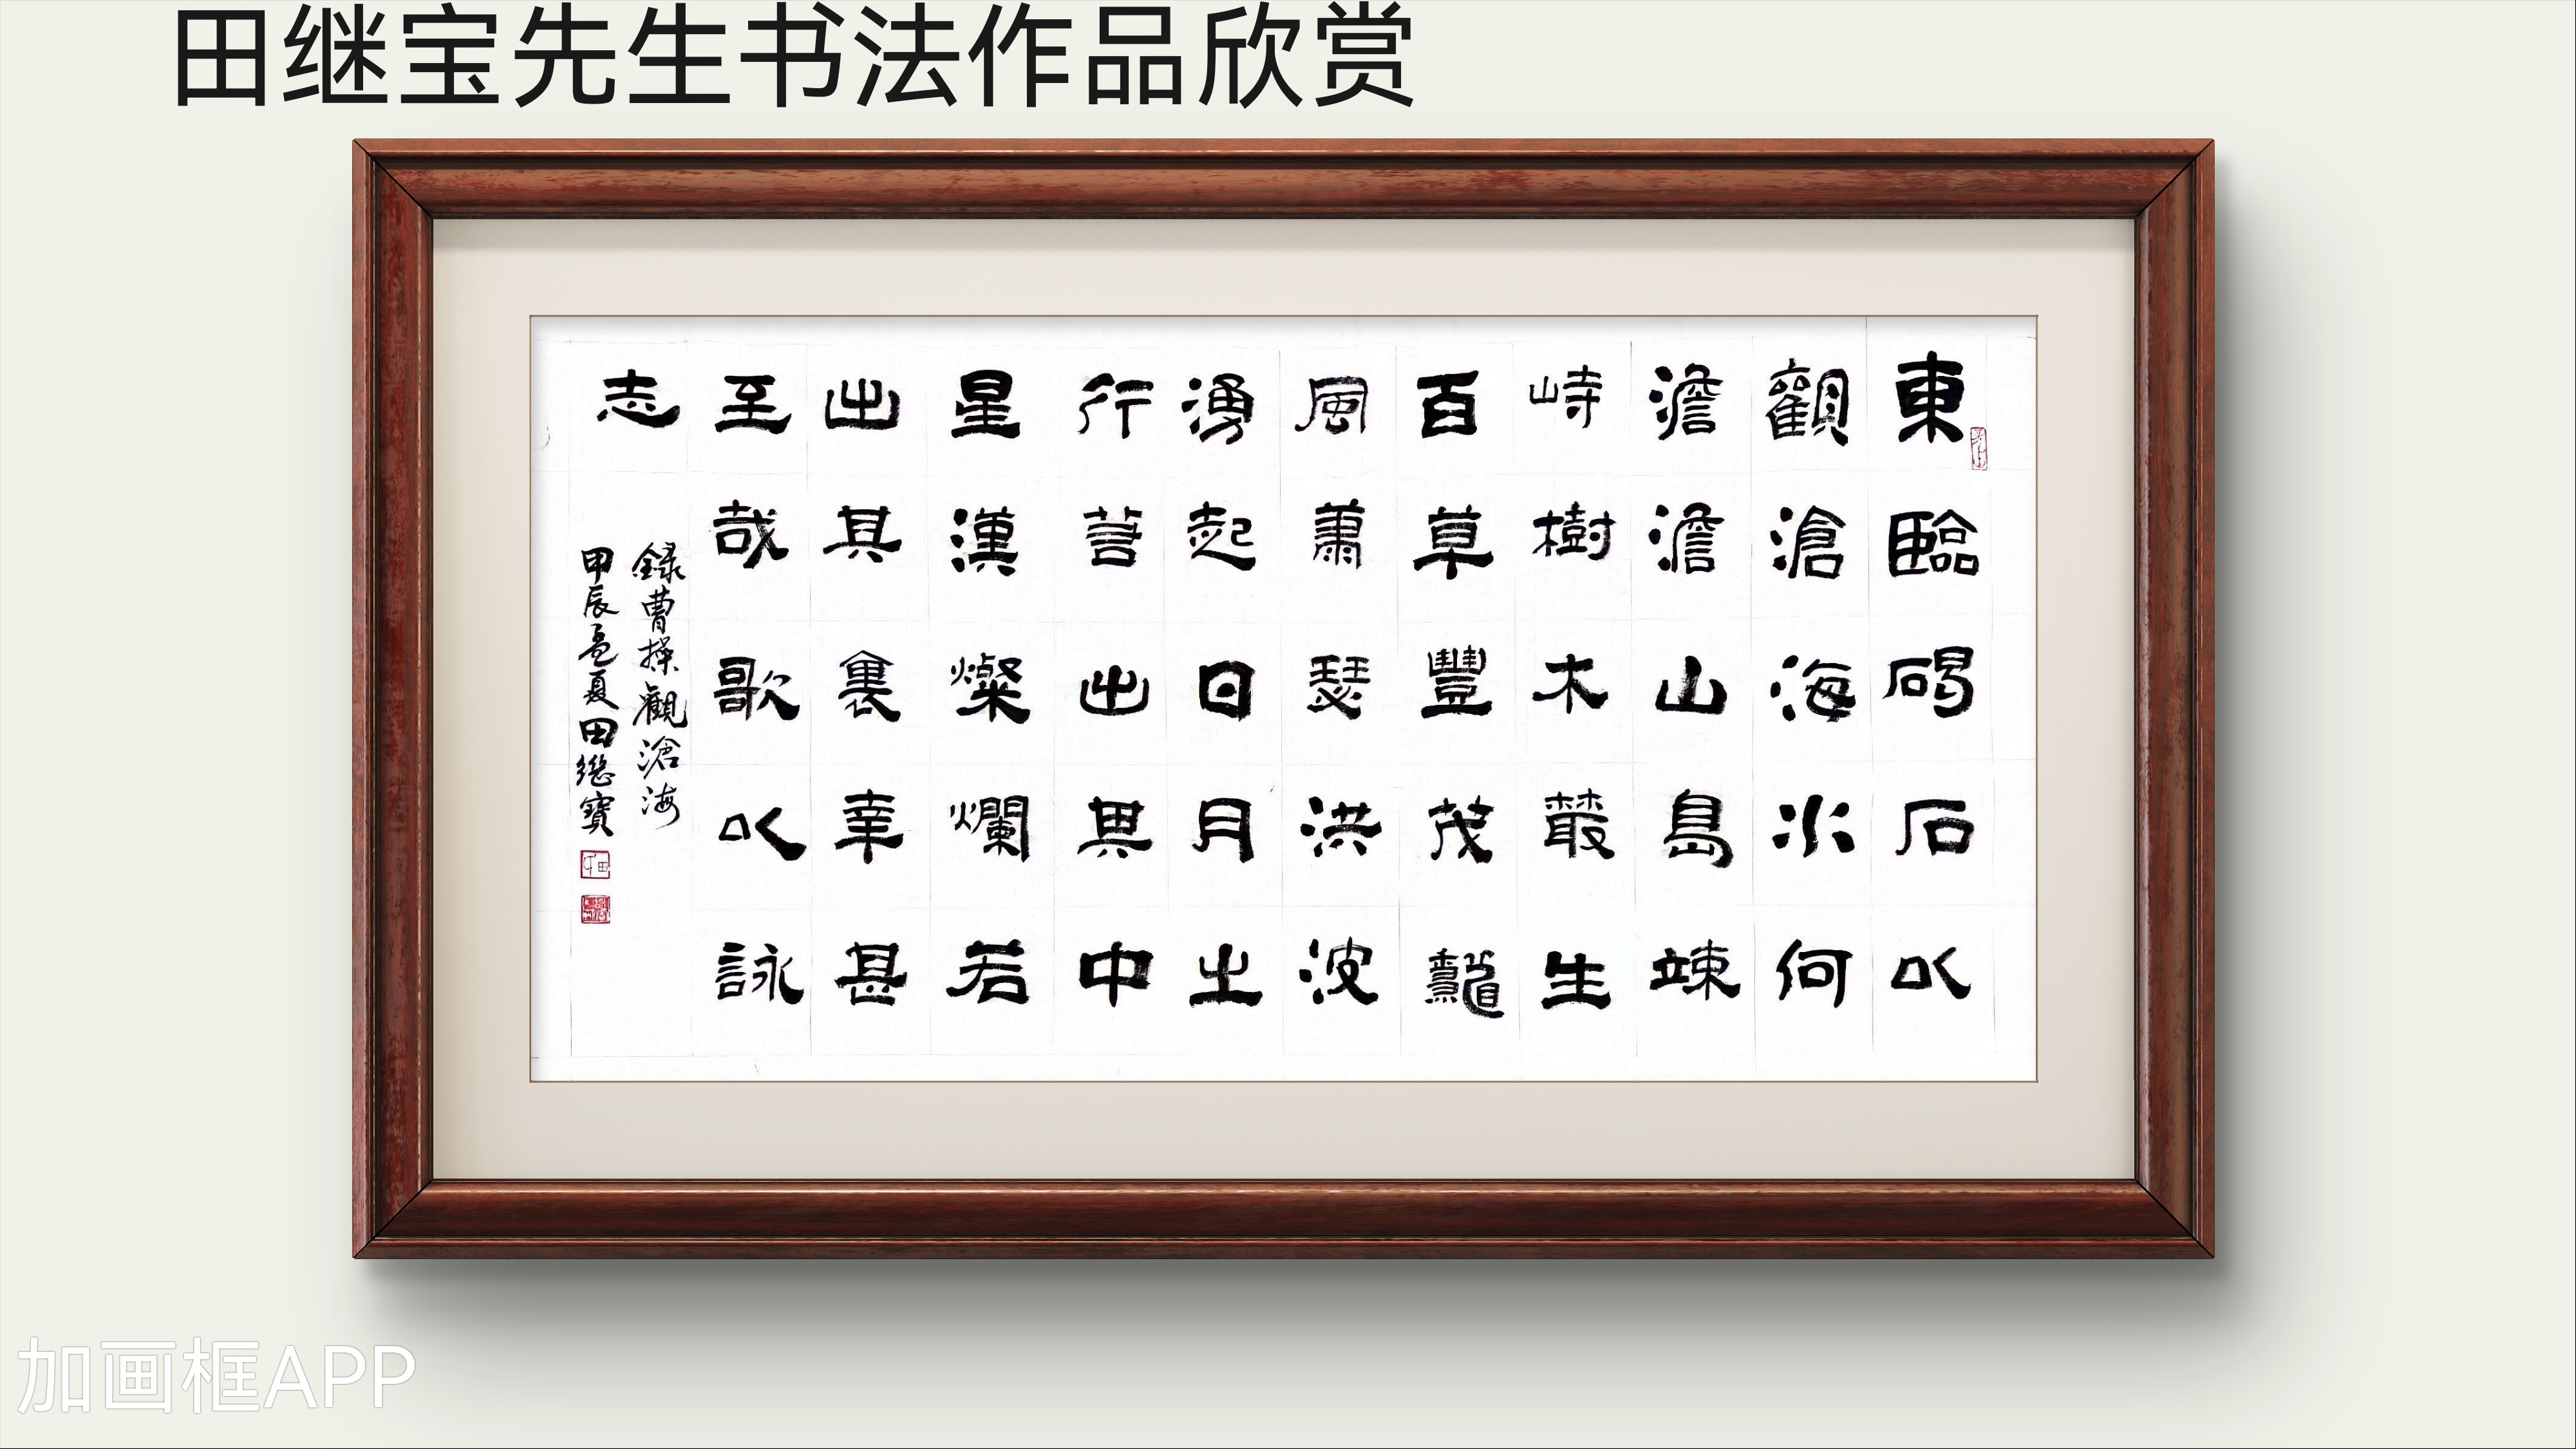 田继宝先生书法作品欣赏
東臨碣石以
觀滄海水何
澹澹山島竦
峙樹木叢生
百草豐茂龝
風蕭瑟洪波
湧起日月之
行若出其中
星漢燦爛若
出其裏幸甚
至哉歌以詠
志
錄曹操觀滄海
甲辰孟夏田繼寶
加画框APP